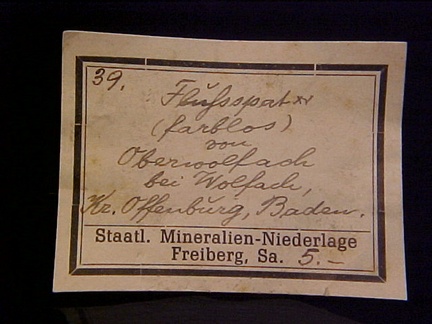 39.
Flußspat xx
(farblos)
von
Oberwolfach
bei Wolfach,
Kr. Offenburg, Baden.
Staatl. Mineralien-Niederlage
Freiberg, Sa. 5.-